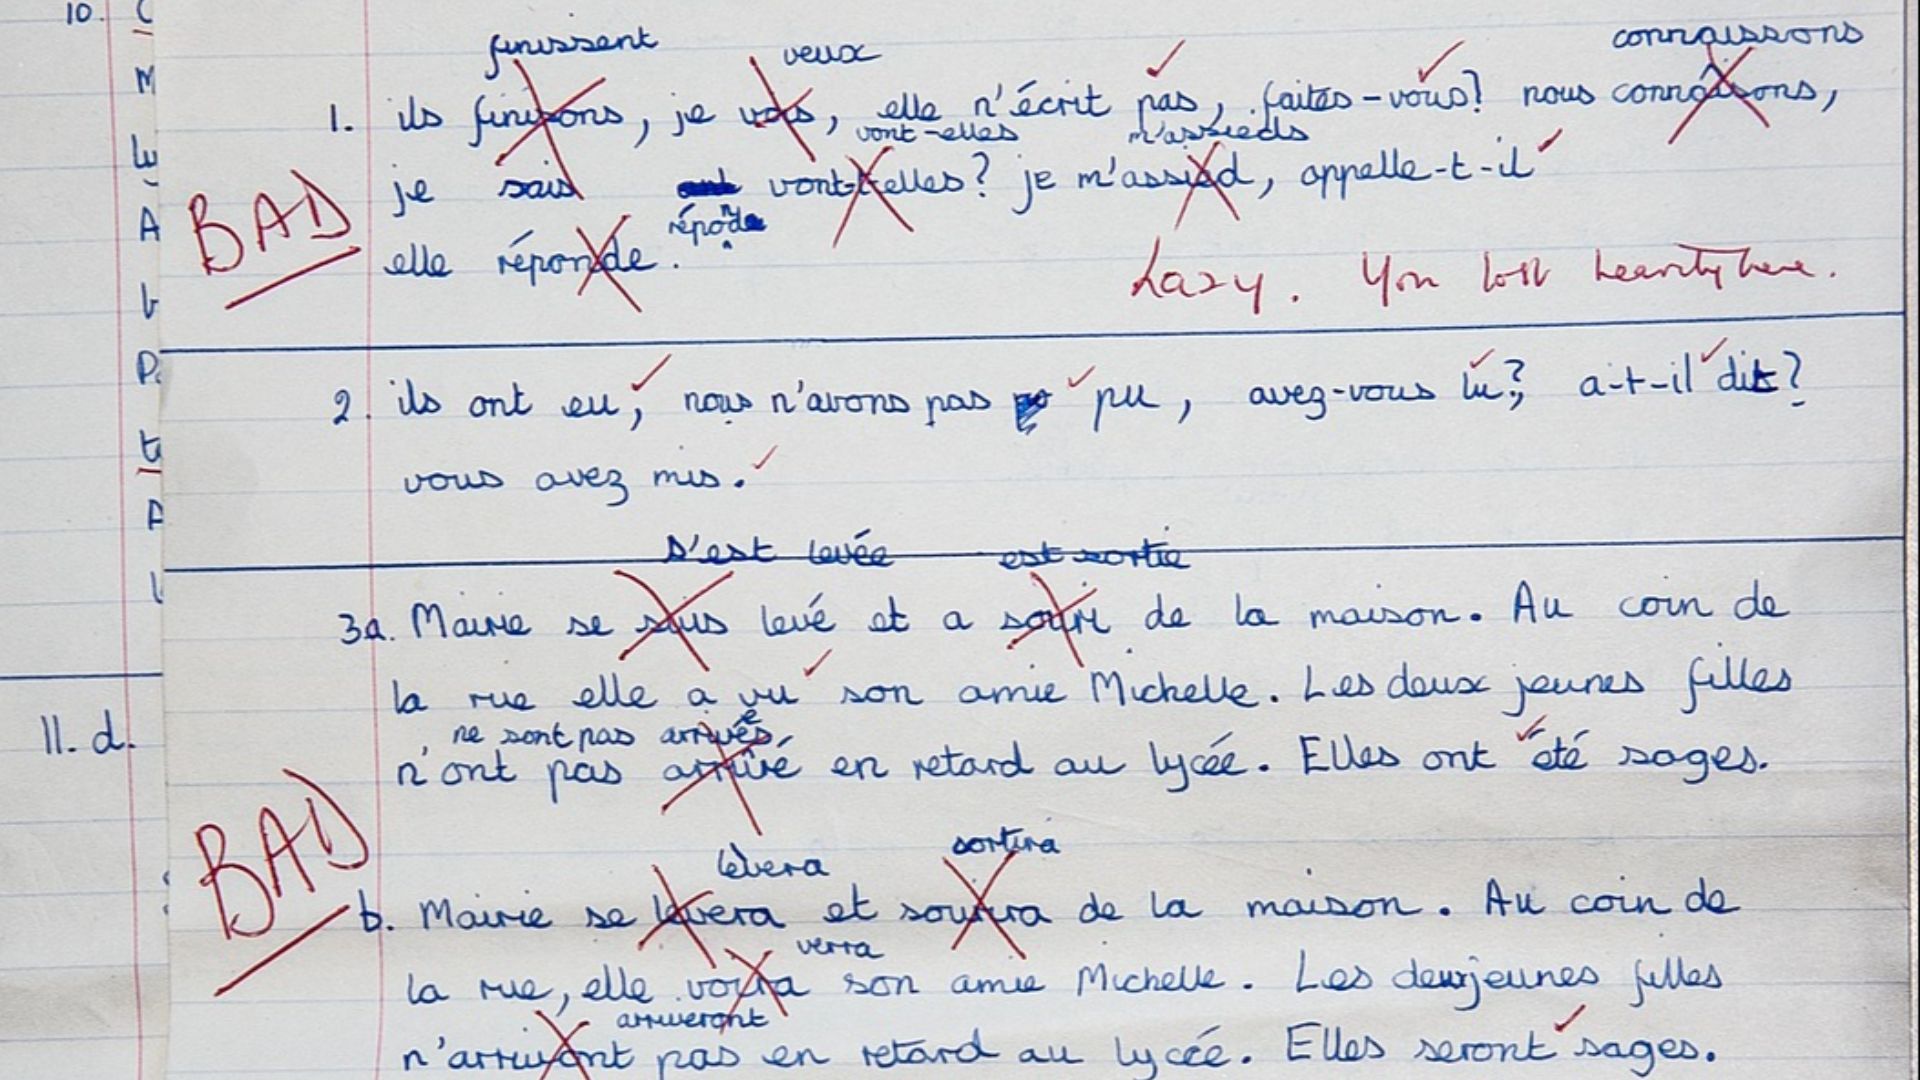 10.
finissent veux connaissons
1. ils finisons, je vois, elle n'écrit pas, faites-vous? nous connaîsons,
vont-elles m'assieds
je sais vont-t-elles? je m'assied, appelle-t-il
BAD
répond
elle réponde.
Lazy. You lost heavily here.
2. ils ont eu, nous n'avons pas pu, avez-vous lu? a-t-il dit?
vous avez mis.
s'est levée est sortie
3a. Mairie se suis levé et a souri de la maison. Au coin de
la rue elle a vu son amie Michelle. Les deux jeunes filles
11. d.
ne sont pas arrivées
n'ont pas arrivé en retard au lycée. Elles ont été sages.
BAD
lèvera sortira
b. Mairie se levera et sourira de la maison. Au coin de
verra
la rue, elle voira son amie Michelle. Les deux jeunes filles
arriveront
n'arrivont pas en retard au lycée. Elles seront sages.